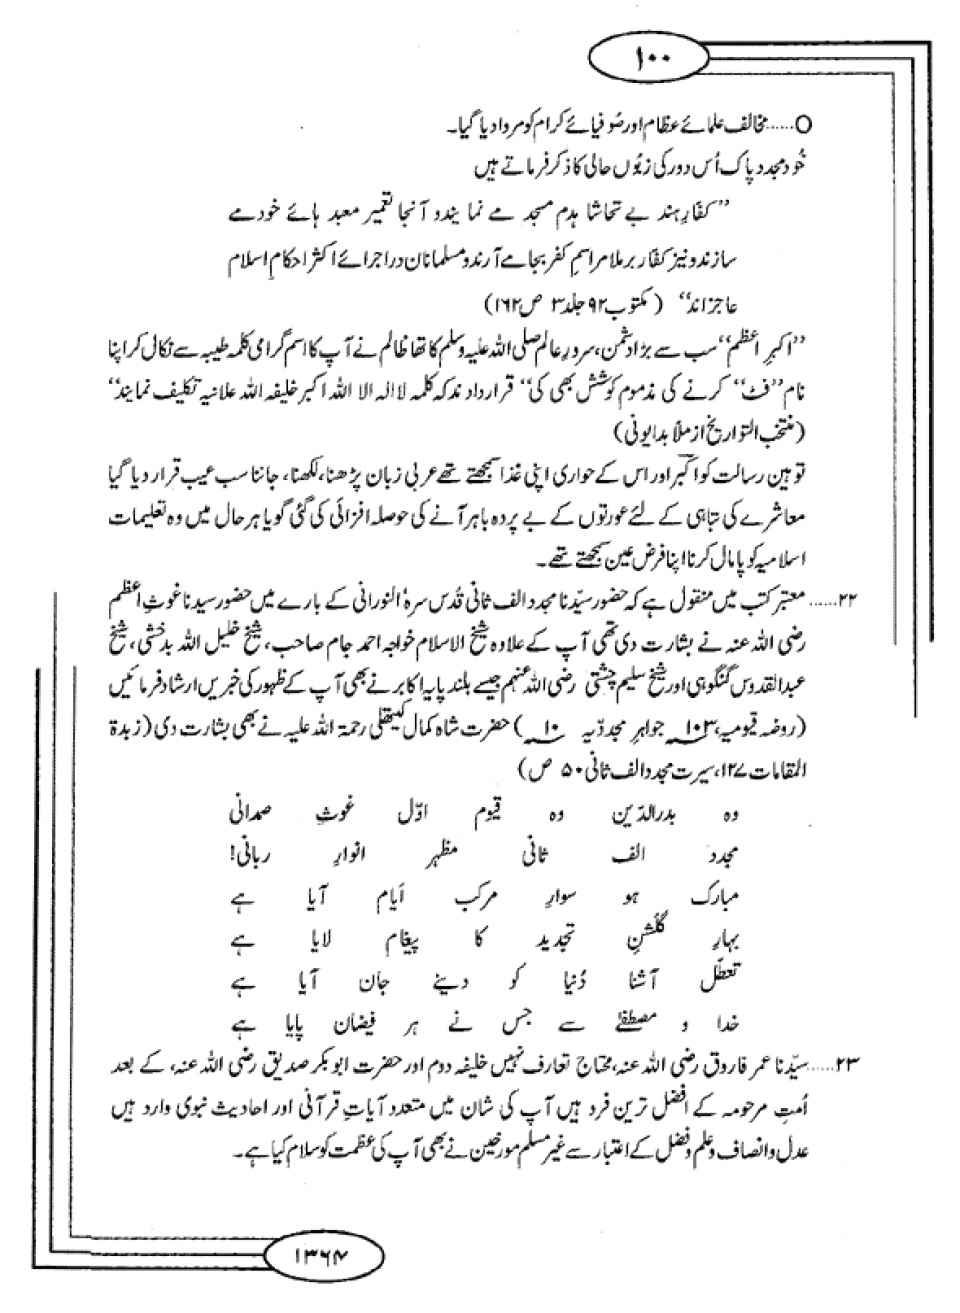 ۱۰۰
O.....مخالف علمائے عظام اور صُوفیائے کرام کو مروا دیا گیا۔
خُود مجدد پاک اُس دور کی زبُوں حالی کا ذکر فرماتے ہیں
”کفّارِ ہند بے تحاشا ہدم مسجد مے نمایند و آنجا تعمیر معبد ہائے خود مے
سازند و نیز کفّار برملا مراسمِ کفر بجا مے آرند و مسلمانان در اجرائے اکثر احکامِ اسلام
عاجز اند“ (مکتوب ۹۲ جلد ۳ ص ۱۶۲)
”اکبرِ اعظم“ سب سے بڑا دشمن، سرورِ عالم صلی اللہ علیہ وسلم کا تھا ظالم نے آپ کا اسم گرامی کلمہ طیبہ سے نکال کر اپنا
نام ”فٹ“ کرنے کی مذموم کوشش بھی کی ”قرار دادند کہ کلمہ لا الہ الا اللہ اکبر خلیفہ اللہ علانیہ تکلیف نمایند“
(منتخب التواریخ از ملاّ بدایونی)
توہین رسالت کو اکبر اور اس کے حواری اپنی غذا سمجھتے تھے عربی زبان پڑھنا، لکھنا، جاننا سب عیب قرار دیا گیا
معاشرے کی تباہی کے لئے عورتوں کے بے پردہ باہر آنے کی حوصلہ افزائی کی گئی گویا ہر حال میں وہ تعلیمات
اسلامیہ کو پامال کرنا اپنا فرض عین سمجھتے تھے۔
۲۲.....معتبر کتب میں منقول ہے کہ حضور سیّدنا مجدد الف ثانی قُدس سرہُ النورانی کے بارے میں حضور سیدنا غوثِ اعظم
رضی اللہ عنہ نے بشارت دی تھی آپ کے علاوہ شیخ الاسلام خواجہ احمد جام صاحب، شیخ خلیل اللہ بدخشی، شیخ
عبدالقدوس گنگوہی اور شیخ سلیم چشتی رضی اللہ عنہم جیسے بلند پایہ اکابر نے بھی آپ کے ظہور کی خبریں ارشاد فرمائیں
(روضہ قیومیہ، ۱۰۳ جواہرِ مجددّیہ ۱۰) حضرت شاہ کمال کیتھلی رحمۃ اللہ علیہ نے بھی بشارت دی (زبدۃ
المقامات ۱۲۷، سیرت مجدد الف ثانی ۵۰ ص)
وہ بدرالدّین وہ قیوم اوّل غوثِ صمدانی
مجدد الف ثانی مظہر انوارِ ربانی!
مبارک ہو سوارِ مرکب ایّام آیا ہے
بہارِ گلشنِ تجدید کا پیغام لایا ہے
تعطّل آشنا دُنیا کو دینے جان آیا ہے
خدا و مصطفےٰ سے جس نے ہر فیضان پایا ہے
۲۳.....سیّدنا عمر فاروق رضی اللہ عنہ، محتاج تعارف نہیں خلیفہ دوم اور حضرت ابوبکر صدیق رضی اللہ عنہ، کے بعد
اُمتِ مرحومہ کے افضل ترین فرد ہیں آپ کی شان میں متعدد آیاتِ قرآنی اور احادیث نبوی وارد ہیں
عدل و انصاف و علم و فضل کے اعتبار سے غیر مسلم مورخین نے بھی آپ کی عظمت کو سلام کیا ہے۔
۱۳۶۴